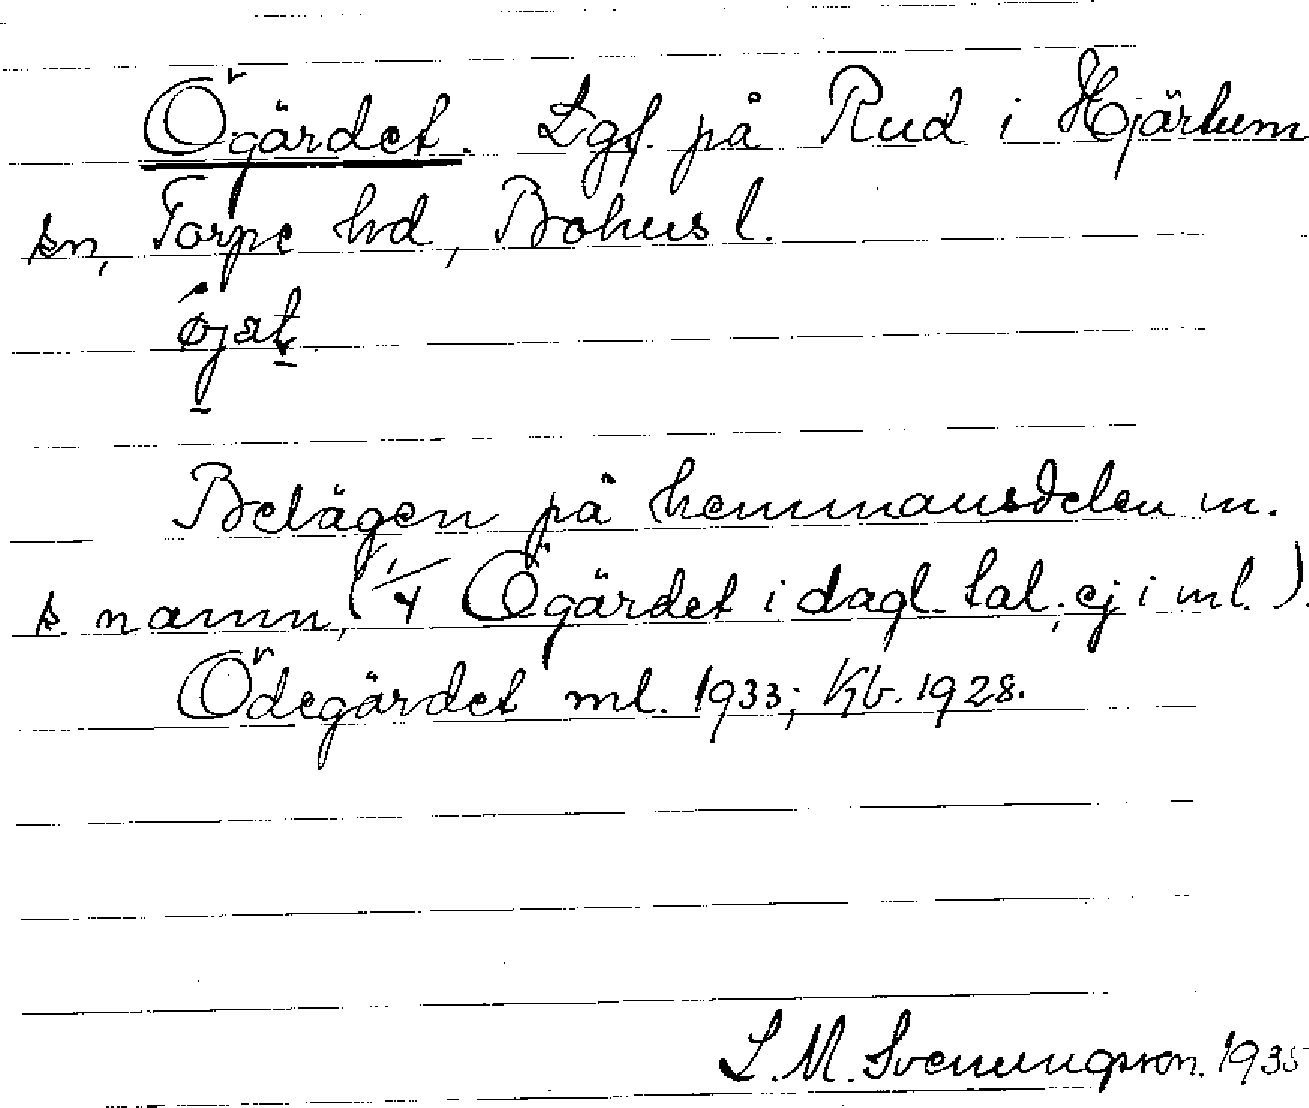 Ögärdet. Lgf. på Rud i Hjärtum
sn, Torpe hd, Bohus l.
Belägen på hemmansdelen m.
s. namn, (1/4 Ögärdet i dagl. tal; ej i ml.).
Ödegärdet ml. 1933; Kb. 1928.
L. M. Svenungsson. 1935